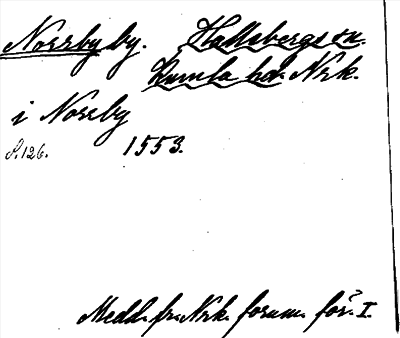 Norrby by. Hallsbergs sn.
Kumla hd. Nrk.
i Norrby
S. 126. 1553.
Medd. fr. Nrk. fornm. för. I.